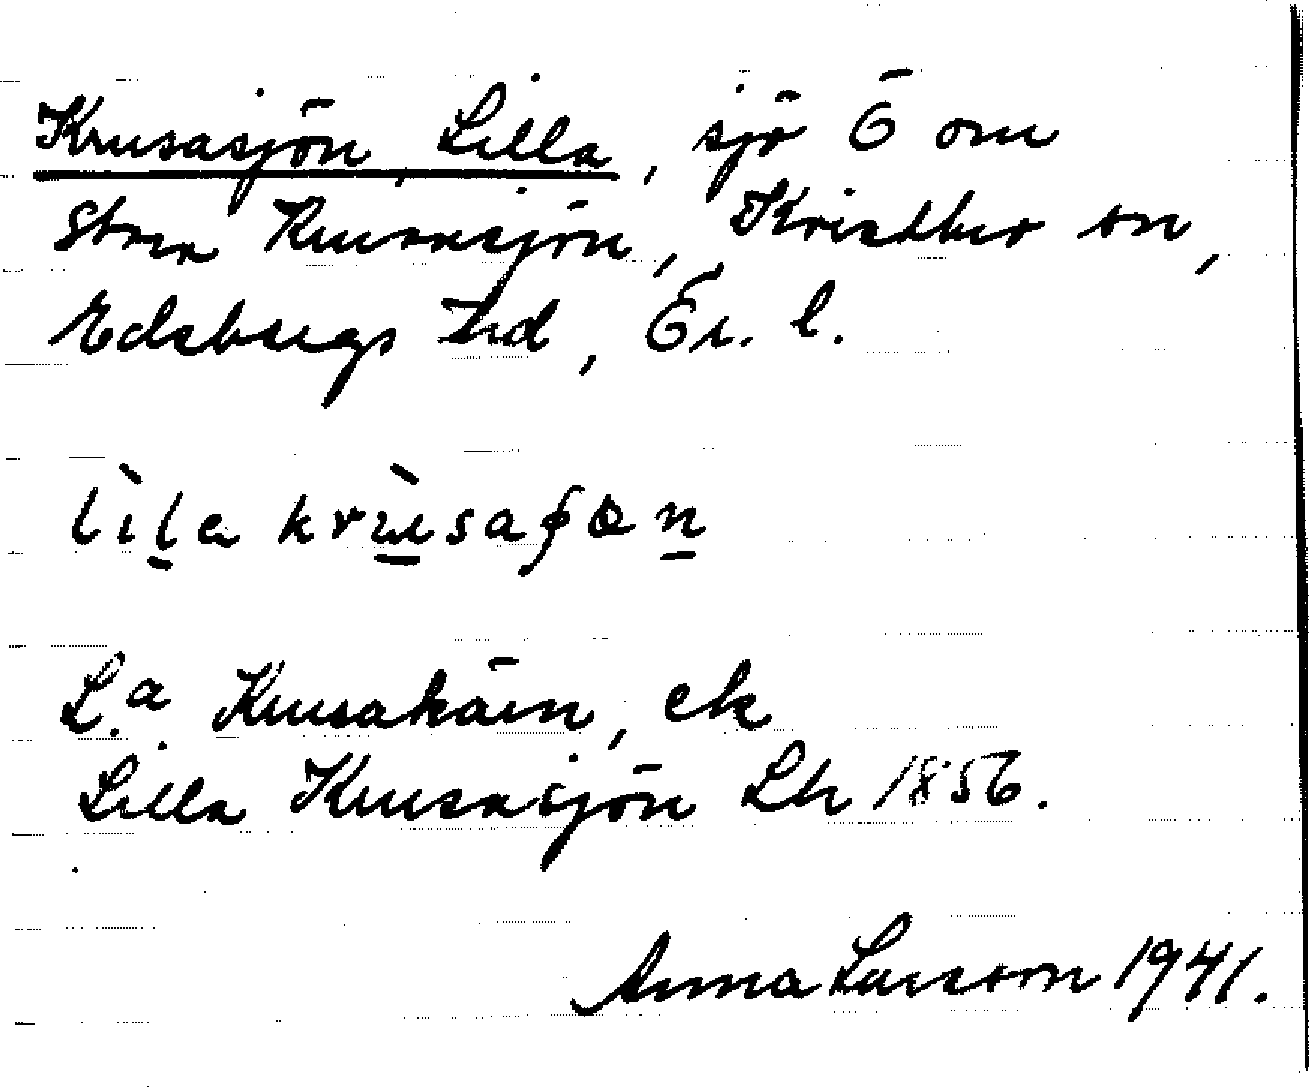 Krusasjön, Lilla, sjö Ö om
Stora Krusasjön, Kristbero sn,
Edsbergs hd, Ör. l.
lìla krùsaʃøn
L.a Krusakärn, ek
Lilla Krusasjön Lk 1856.
Anna Larsson 1941.